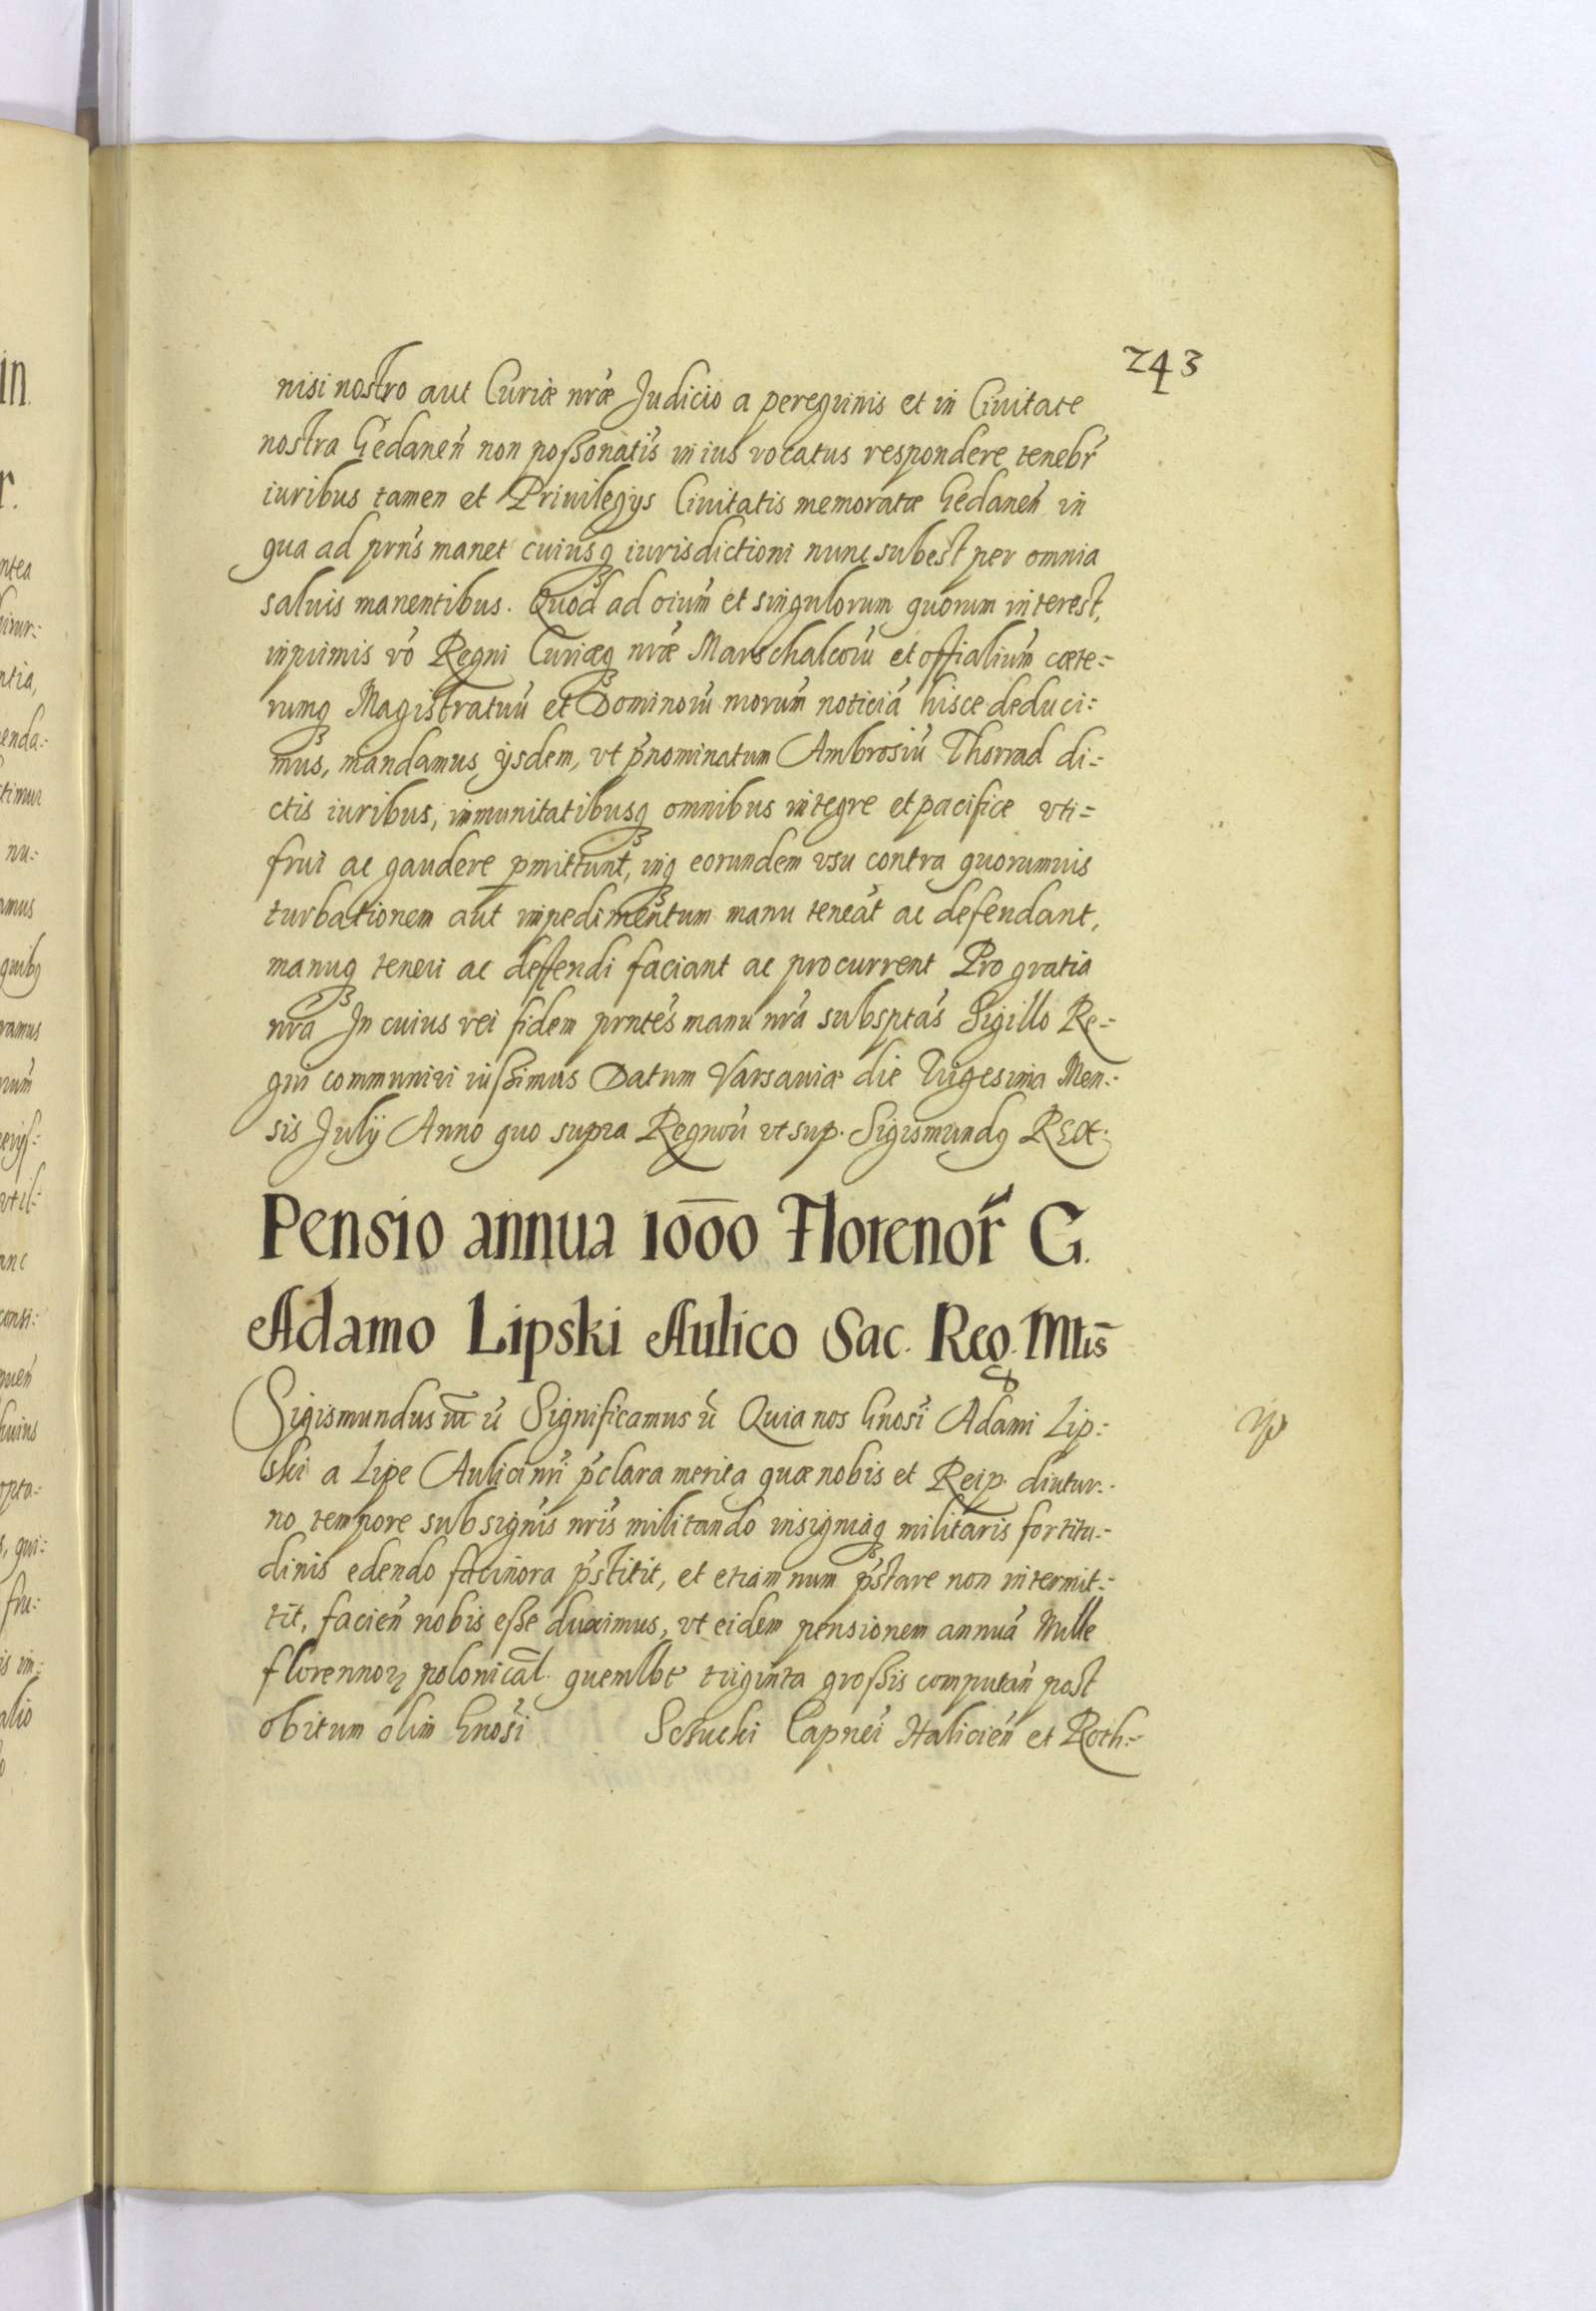 243
nisi nostro aut Curiæ nræ Judicio a peregrinis et in Ciuitate
nostra Gedaneñ non poßonatis in ius vocatus respondere tenebr̃
iuribus tamen et Priuilegijs Ciuitatis memoratæ Gedaneñ in
qua ad prn̄s manet cuiusq3 iurisdictioni nunc subest per omnia
saluis manentibus. Quod ad oiūm et singulorum quorum interest,
inprimis vō Regni Curiæq3 nræ Marschalcorū et offialiūm cæte-
rumq3 Magistratuū et Dominorū morum noticiā hisce deduci-
mus, mandamus ijsdem, vt p̄nominatum Ambrosiū Thorrad di-
ctis iuribus, immunitatibusq3 omnibus integre et pacifice vti-
frui ac gaudere pmittant, inq3 eorundem vsu contra quorumuis
turbationem aut impedimentum manu teneāt ac defendant,
manuq3 teneri ac deffendi faciant ac procurrent Pro gratia
nr̄a In cuius rei fidem prn̄tes manu nr̄a subsptas Sigillo Re-
gni communiri iußimus Datum Varsauiæ die Vigesima Men-
sis Julÿ Anno quo supra Regnorū vt sup. Sigismundq REX.
Pensio annua 1000 Florenor̃ G.
Adamo Lipski Aulico Sac. Reg. Mtis
Sigismundus iii ū Significamus ū Quia nos Gnosi Adami Lip-
ski a Lipe Aulici nri p̄clara merita quæ nobis et Reip. diutur-
no tempore sub signis nris militando insigniaq3 militaris fortitu-
dinis edendo facinora p̄stitit, et etiam num p̄stare non intermit-
tit, facieñ nobis eße duximus, vt eidem pensionem annuā Mille
florennoꝝ polonical. quemlbt triginta großis computañ post
obitum olim Gnosi Schucki Capnei Halicieñ et Roth-